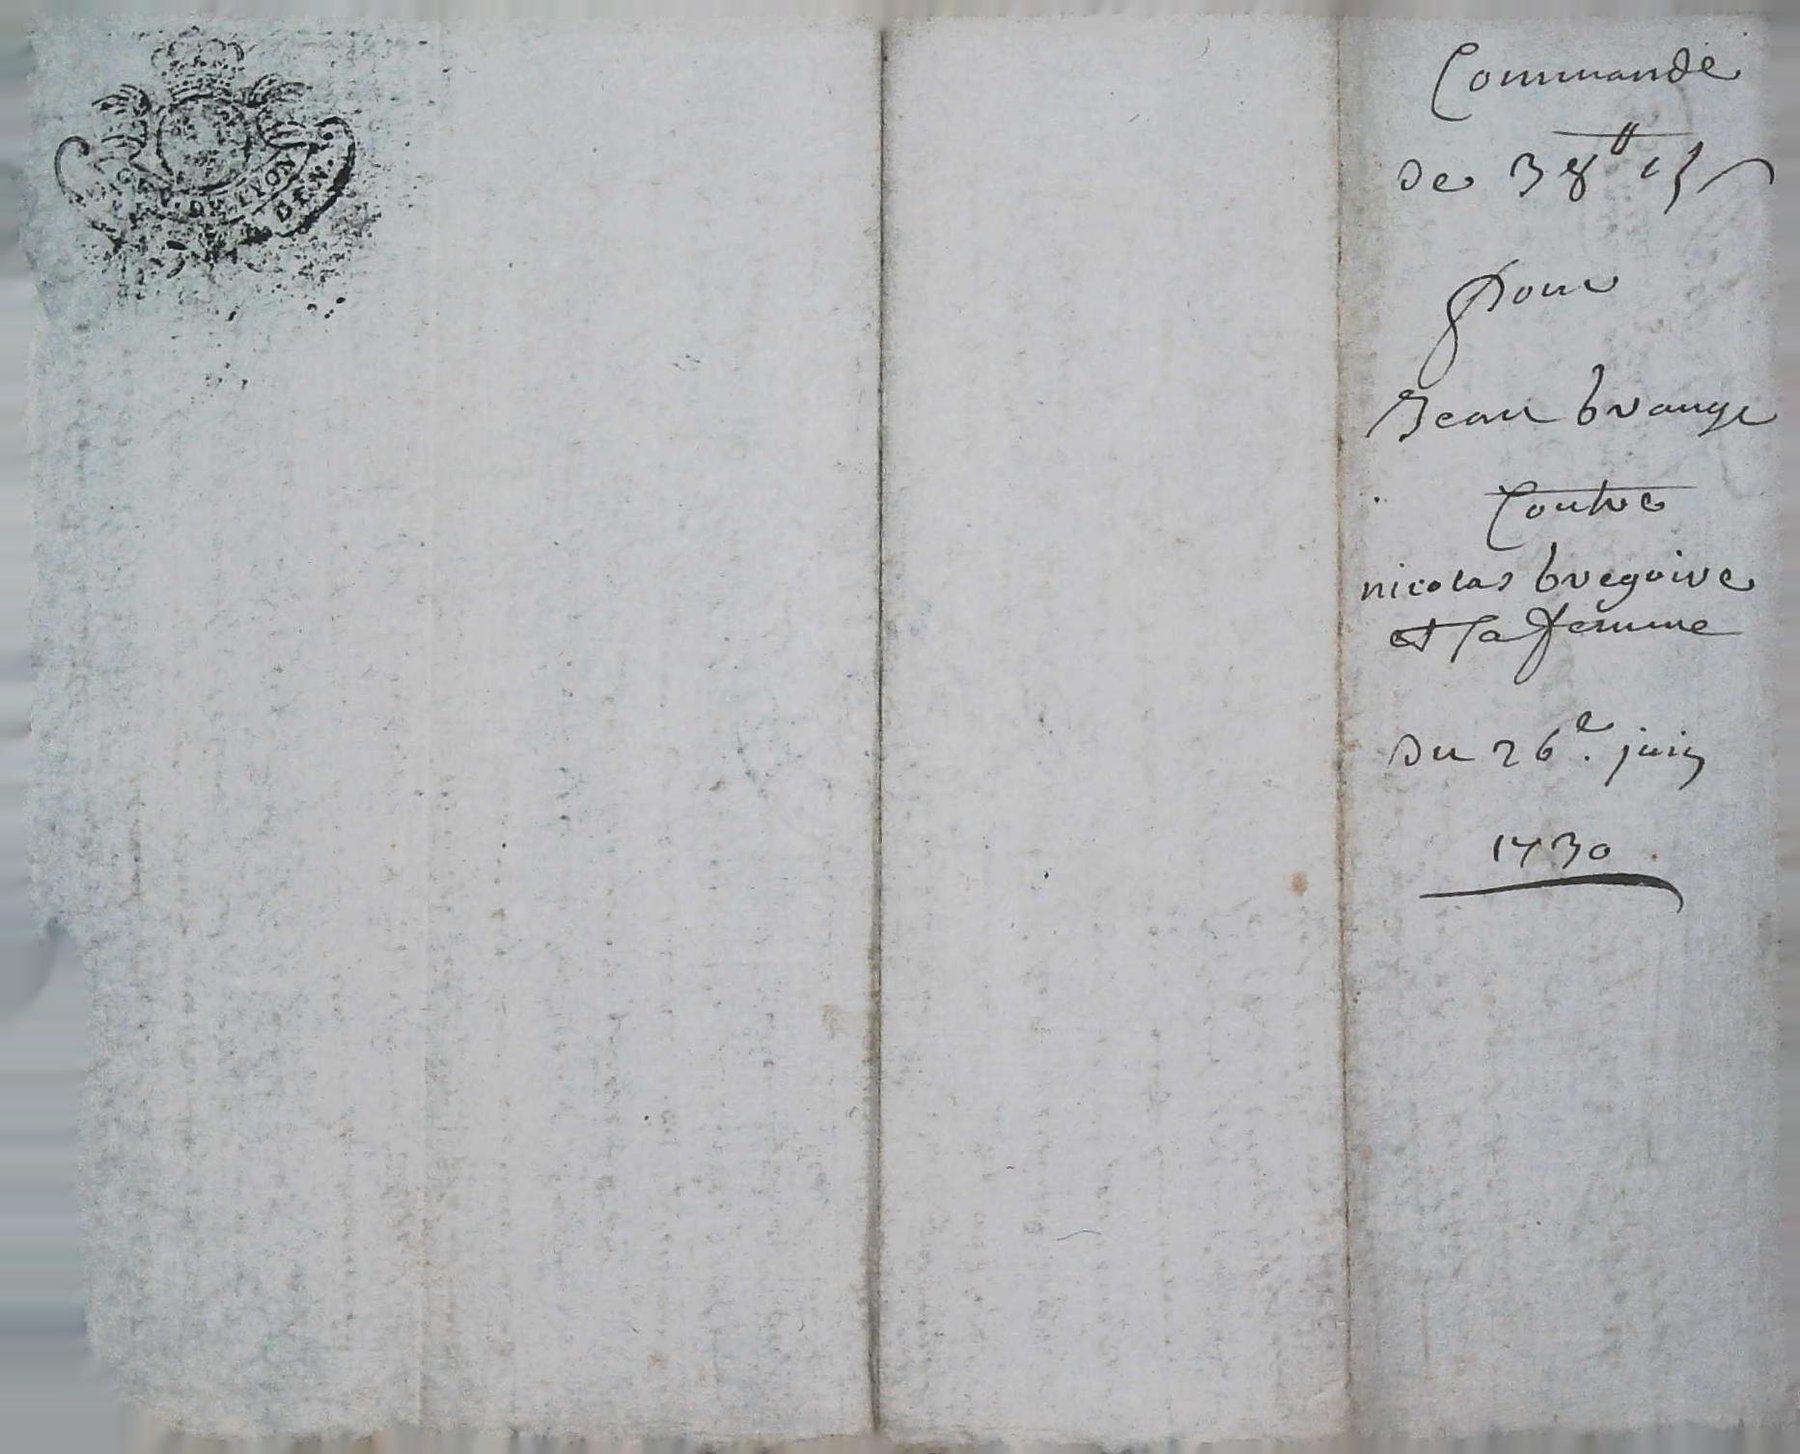 GEN. DE LYON
DEN.
Commande
de 38 ₶ 15 s
pour
Jean brange
Contre
nicolas bregoire
et sa femme
du 26e. juin
1730